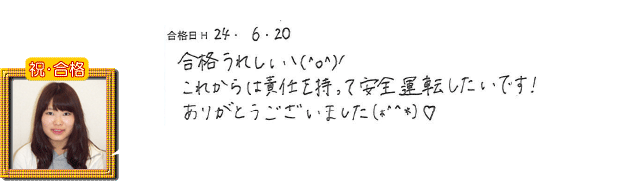 合格日 H 24. 6. 20
祝・合格
合格うれしいい(^o^)!
これからは責任を持って安全運転したいです!
ありがとうございました(*^^*)♡